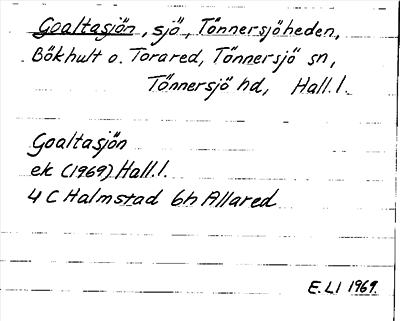 Goaltasjön, sjö, Tönnersjöheden,
Bökhult o. Torared, Tönnersjö sn,
Tönnersjö hd, Hall. l.
Goaltasjön
ek (1969) Hall. l.
4 C Halmstad 6h Allared
E. LI 1969.